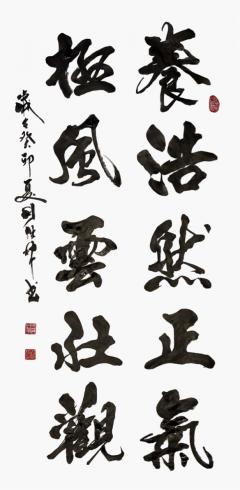 養浩然正氣
極風雲壯觀
歲在癸卯夏
書